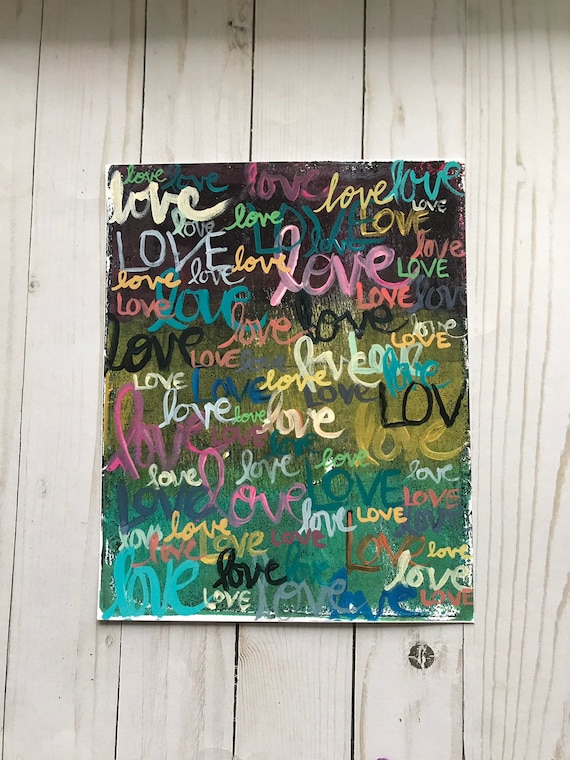 love love love love love
love love love LOVE LOVE love
LOVE love love love love
love love love LOVE
LOVE love LOVE love
love love love love
love LOVE love LOVE
LOVE LOVE love LOVE love
love love love LOV
love LOVE love love
love love love love
LOVE love LOVE LOVE
love love love LOVE LOVE
love LOVE LOVE LOVE love
love love love love
LOVE love love LOVE